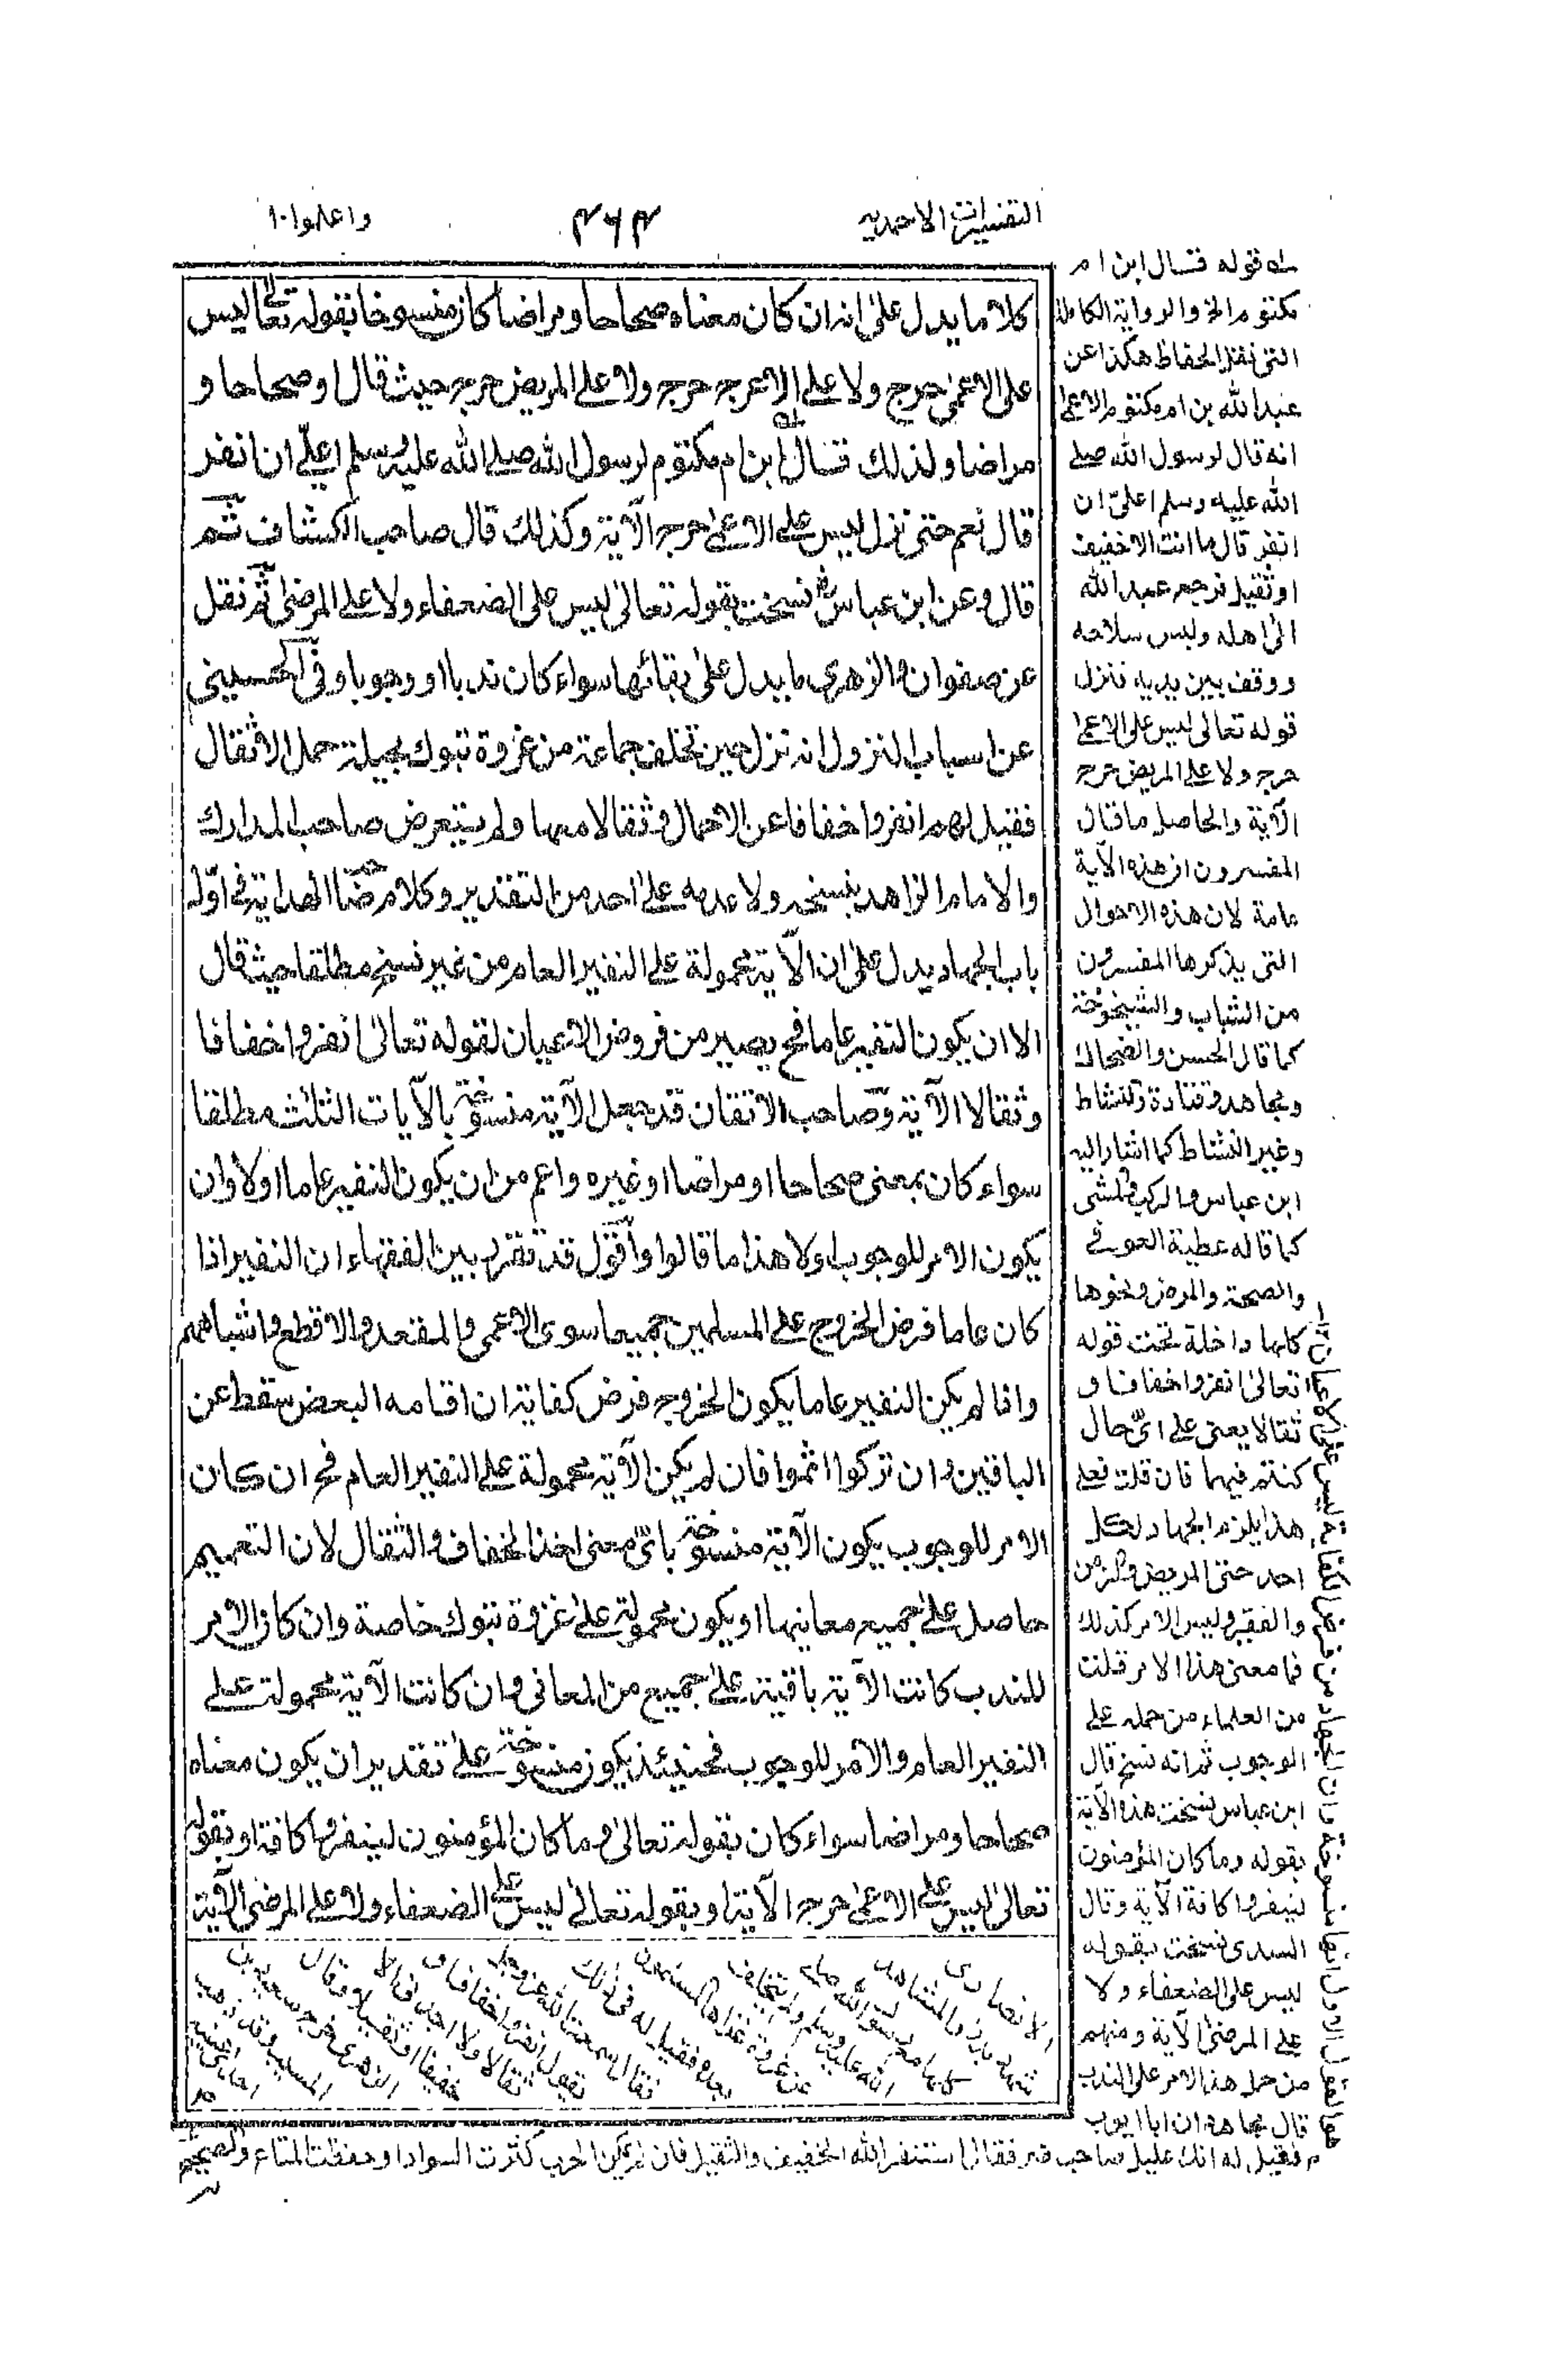 التفسيرات الاحمديه
٤٦٤
واعلموا ١٠
كلاما يدل على انه ان كان معناه صحاحا ومراضا كان منسوخا بقوله تعالى ليس
على الاعمى حرج ولا على الاعرج حرج ولا على المريض حرج حيث قال او صحاحا و
مراضا ولذلك قال ابن ام مكتوم لرسول الله صلى الله عليه وسلم اعليّ ان انفر
قال نعم حتى نزل ليس على الاعمى حرج الآية وكذلك قال صاحب الكشاف ثم
قال وعن ابن عباس نسخت بقوله تعالى ليس على الضعفاء ولا على المرضى ثم نقل
عن صفوان والزهري ما يدل على بقائها سواء كان ندبا او وجوبا وفى الحسينى
عن اسباب النزول انه نزل حين تخلف جماعة من غزوة تبوك بحيلة حمل الاثقال
فقيل لهم انفروا خفافا عن الاحمال وثقالا معها ولم يتعرض صاحب المدارك
والامام الزاهد بنسخه ولا عدمه على احد من التقدير وكلام صاحب الهداية فى اوّل
باب الجهاد يدل على ان الآية محمولة على النفير العام من غير نسخ مطلقا حيث قال
الا ان يكون النفير عاما فح يصير من فروض الاعيان لقوله تعالى انفروا خفافا
وثقالا الآية وصاحب الاتقان قد جعل الآية منسوخة بالآيات الثلث مطلقا
سواء كان بمعنى صحاحا او مراضا او غيره واعم من ان يكون النفير عاما اولا وان
يكون الامر للوجوب اولا هذا ما قالوا واقول قد تقرر بين الفقهاء ان النفير اذا
كان عاما فرض الخروج على المسلمين جميعا سوى الاعمى والمقعد والاقطع واشباههم
واذا لم يكن النفير عاما يكون الخروج فرض كفاية ان اقامه البعض سقط عن
الباقين وان تركوا اثموا فان لم يكن الآية محمولة على النفير العام فح ان كان
الامر للوجوب يكون الآية منسوخة باىّ معنى اخذ الخفاف والثقال لان التعميم
حاصل على جميع معانيها او يكون محمولة على غزوة تبوك خاصة وان كان الامر
للندب كانت الآية باقية على جميع من المعانى وان كانت الآية محمولة على
النفير العام والامر للوجوب فحينئذ يكون منسوخة على تقدير ان يكون معناه
صحاحا ومراضا سواء كان بقوله تعالى وما كان المؤمنون لينفروا كافة او بقوله
تعالى ليس على الاعمى حرج الآية او بقوله تعالى ليس على الضعفاء ولا على المرضى الآية
له قوله قال ابن ام
مكتوم الخ والرواية الكاملة
التى نقلها الحفاظ هكذا عن
عبد الله بن ام مكتوم الاعمى
انه قال لرسول الله صلى
الله عليه وسلم اعليّ ان
انفر قال ما انت الا خفيف
او ثقيل فرجع عبد الله
الى اهله ولبس سلاحه
ووقف بين يديه فنزل
قوله تعالى ليس على الاعمى
حرج ولا على المريض حرج
الآية والحاصل ما قال
المفسرون ان هذه الآية
عامة لان هذه الاحوال
التى يذكرها المفسرون
من الشباب والشيخوخة
كما قال الحسن والضحاك
ومجاهد وقتادة والنشاط
وغير النشاط كما اشار اليه
ابن عباس والركب والمشى
كما قاله عطية العوفى
والصحة والمرض ونحوها
كلها داخلة تحت قوله
تعالى انفروا خفافا و
ثقالا يعنى على اىّ حال
كنتم فيها فان قلت فعلى
هذا يلزم الجهاد لكل
احد حتى المريض والزمن
والفقير وليس الامر كذلك
فما معنى هذا الامر قلت
من العلماء من حمله على
الوجوب ثم انه نسخ قال
ابن عباس نسخت هذه الآية
بقوله وما كان المؤمنون
لينفروا كافة الآية وقال
السدى نسخت بقوله
ليس على الضعفاء ولا
على المرضى الآية ومنهم
من حمل هذا الامر على الندب
قال مجاهد ان ابا ايوب
الانصارى
شهد بدرا والمشاهد
كلها مع رسول الله صلى
الله عليه وسلم ولم يتخلف
عن غزوة غزاها المسلمون
بعده فقيل له فى ذلك
فقال سمعت الله عز وجل
يقول انفروا خفافا و
ثقالا ولا اجدنى الا
خفيفا او ثقيلا وقال
الزهرى خرج سعيد بن
المسيب وقد ذهب
احدى عينيه
فقيل له انك عليل صاحب ضر فقال استنفر الله الخفيف والثقيل فان لم يمكن الحرب كثرت السواد او حفظت المتاع